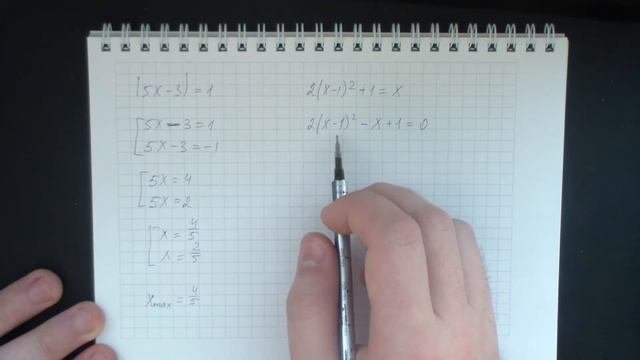 |5x-3|=1
[5x-3=1
[5x-3=-1
[5x=4
[5x=2
[x=4/5
[x=2/5
xmax=4/5
2(x-1)²+1=x
2(x-1)²-x+1=0